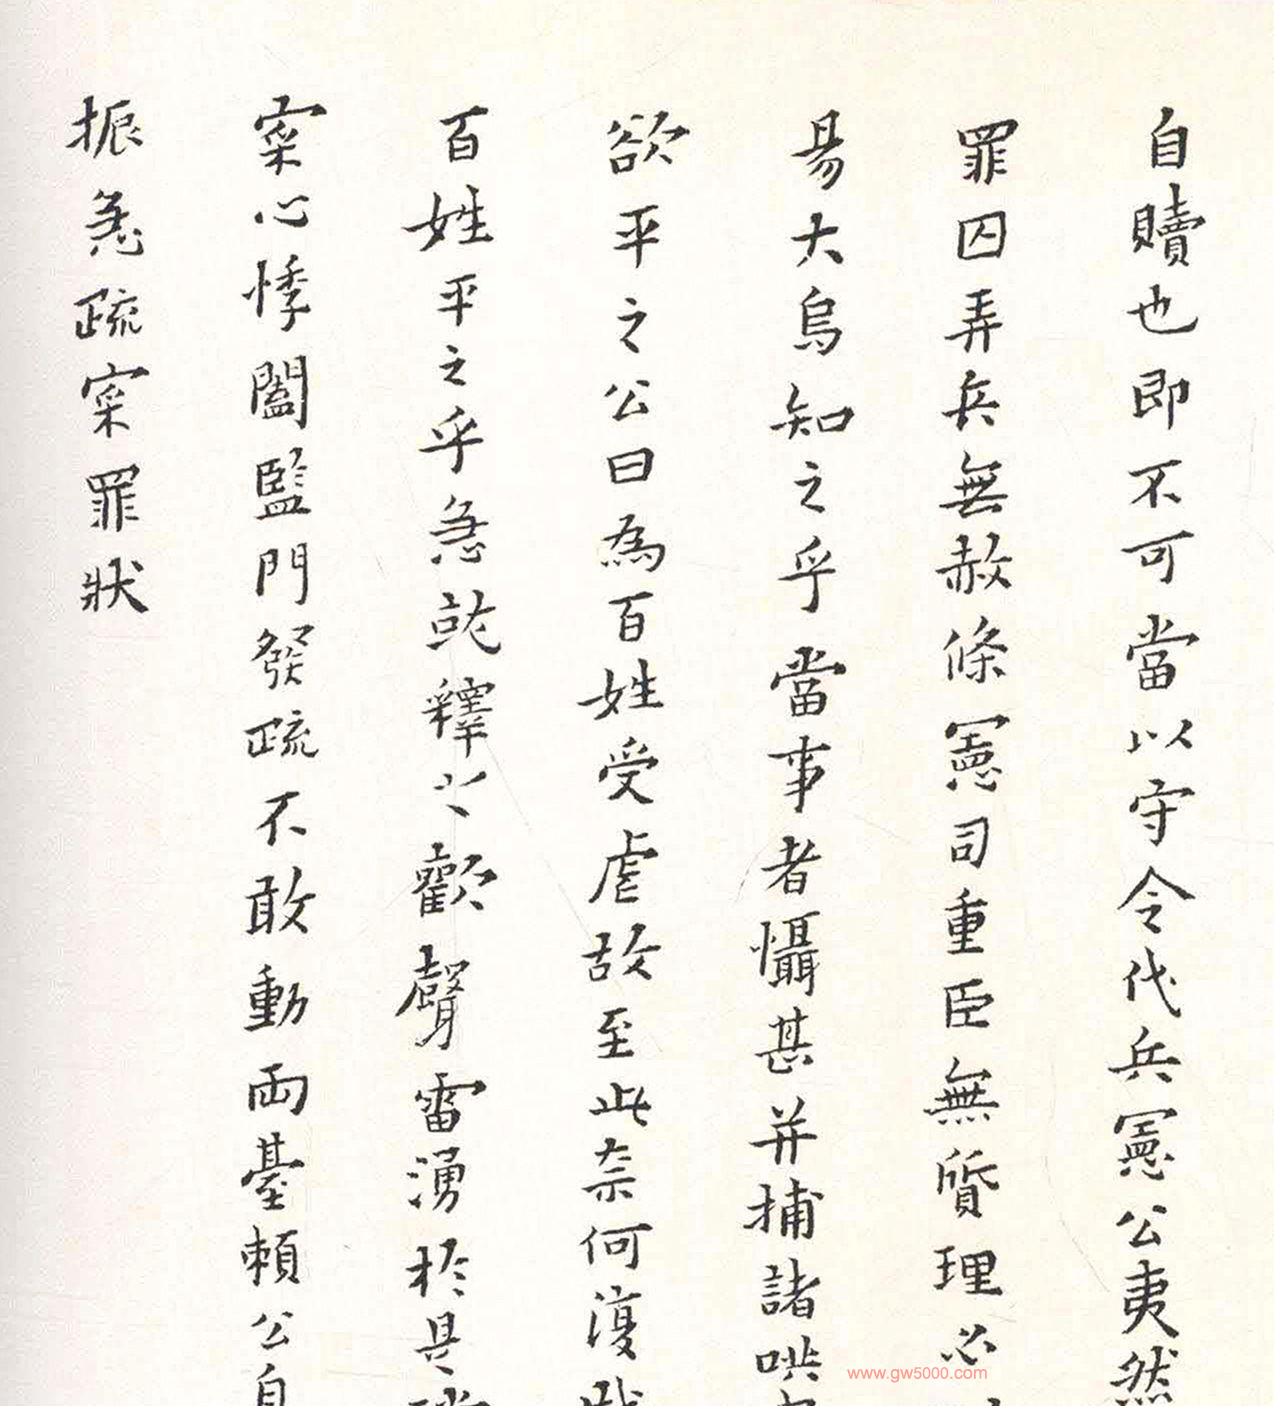 自贖也即不可當以守令代兵憲公夷然
罪囚弄兵無赦條憲司重臣無質理必
易大烏知之乎當事者懾甚并捕諸哄
欲平之公曰為百姓受虐故至此奈何復
百姓平之乎急詫釋之歡聲雷湧於是
寀心悸闔監門發疏不敢動兩臺賴公自
振急疏寀罪狀
www.gw5000.com